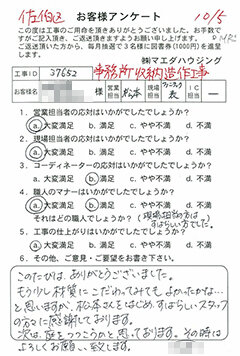 佐伯区
お客様アンケート
10/5
この度は工事のご用命を頂きありがとうございました。お手数で
すがご記入頂き、ご返送頂きますようお願い申し上げます。
ご返送頂いた方から、毎月抽選で3名様に図書券(1000円)を進呈
します。
㈱マエダハウジング
工事ID 37652 事務所収納造作工事
お客様名 様 営業担当 松本 現場担当 表 IC担当 ―
1. 営業担当者の応対はいかがでしたでしょうか?
a.大変満足 b.満足 c.やや不満 d.不満
2. 現場担当者の応対はいかがでしたでしょうか?
a.大変満足 b.満足 c.やや不満 d.不満
3. コーディネーターの応対はいかがでしたでしょうか?
a.大変満足 b.満足 c.やや不満 d.不満
4. 職人のマナーはいかがでしたでしょうか?
a.大変満足 b.満足 c.やや不満 d.不満
それはどの職人でしょうか?(現場担当の方は すばらしい方でした。)
5. 工事の仕上がりはいかがでしたでしょうか?
a.大変満足 b.満足 c.やや不満 d.不満
6. その他、ご意見・ご要望をお書き下さい。
このたびは、ありがとうございました。
もう少し材質にこだわってみても、よかったかは…
と思いますが、松本さんをはじめ、すばらしいスタッフ
の方々に感謝しております。
次は、庭をつっこうかと思っております。その時は
よろしくお願い致します。